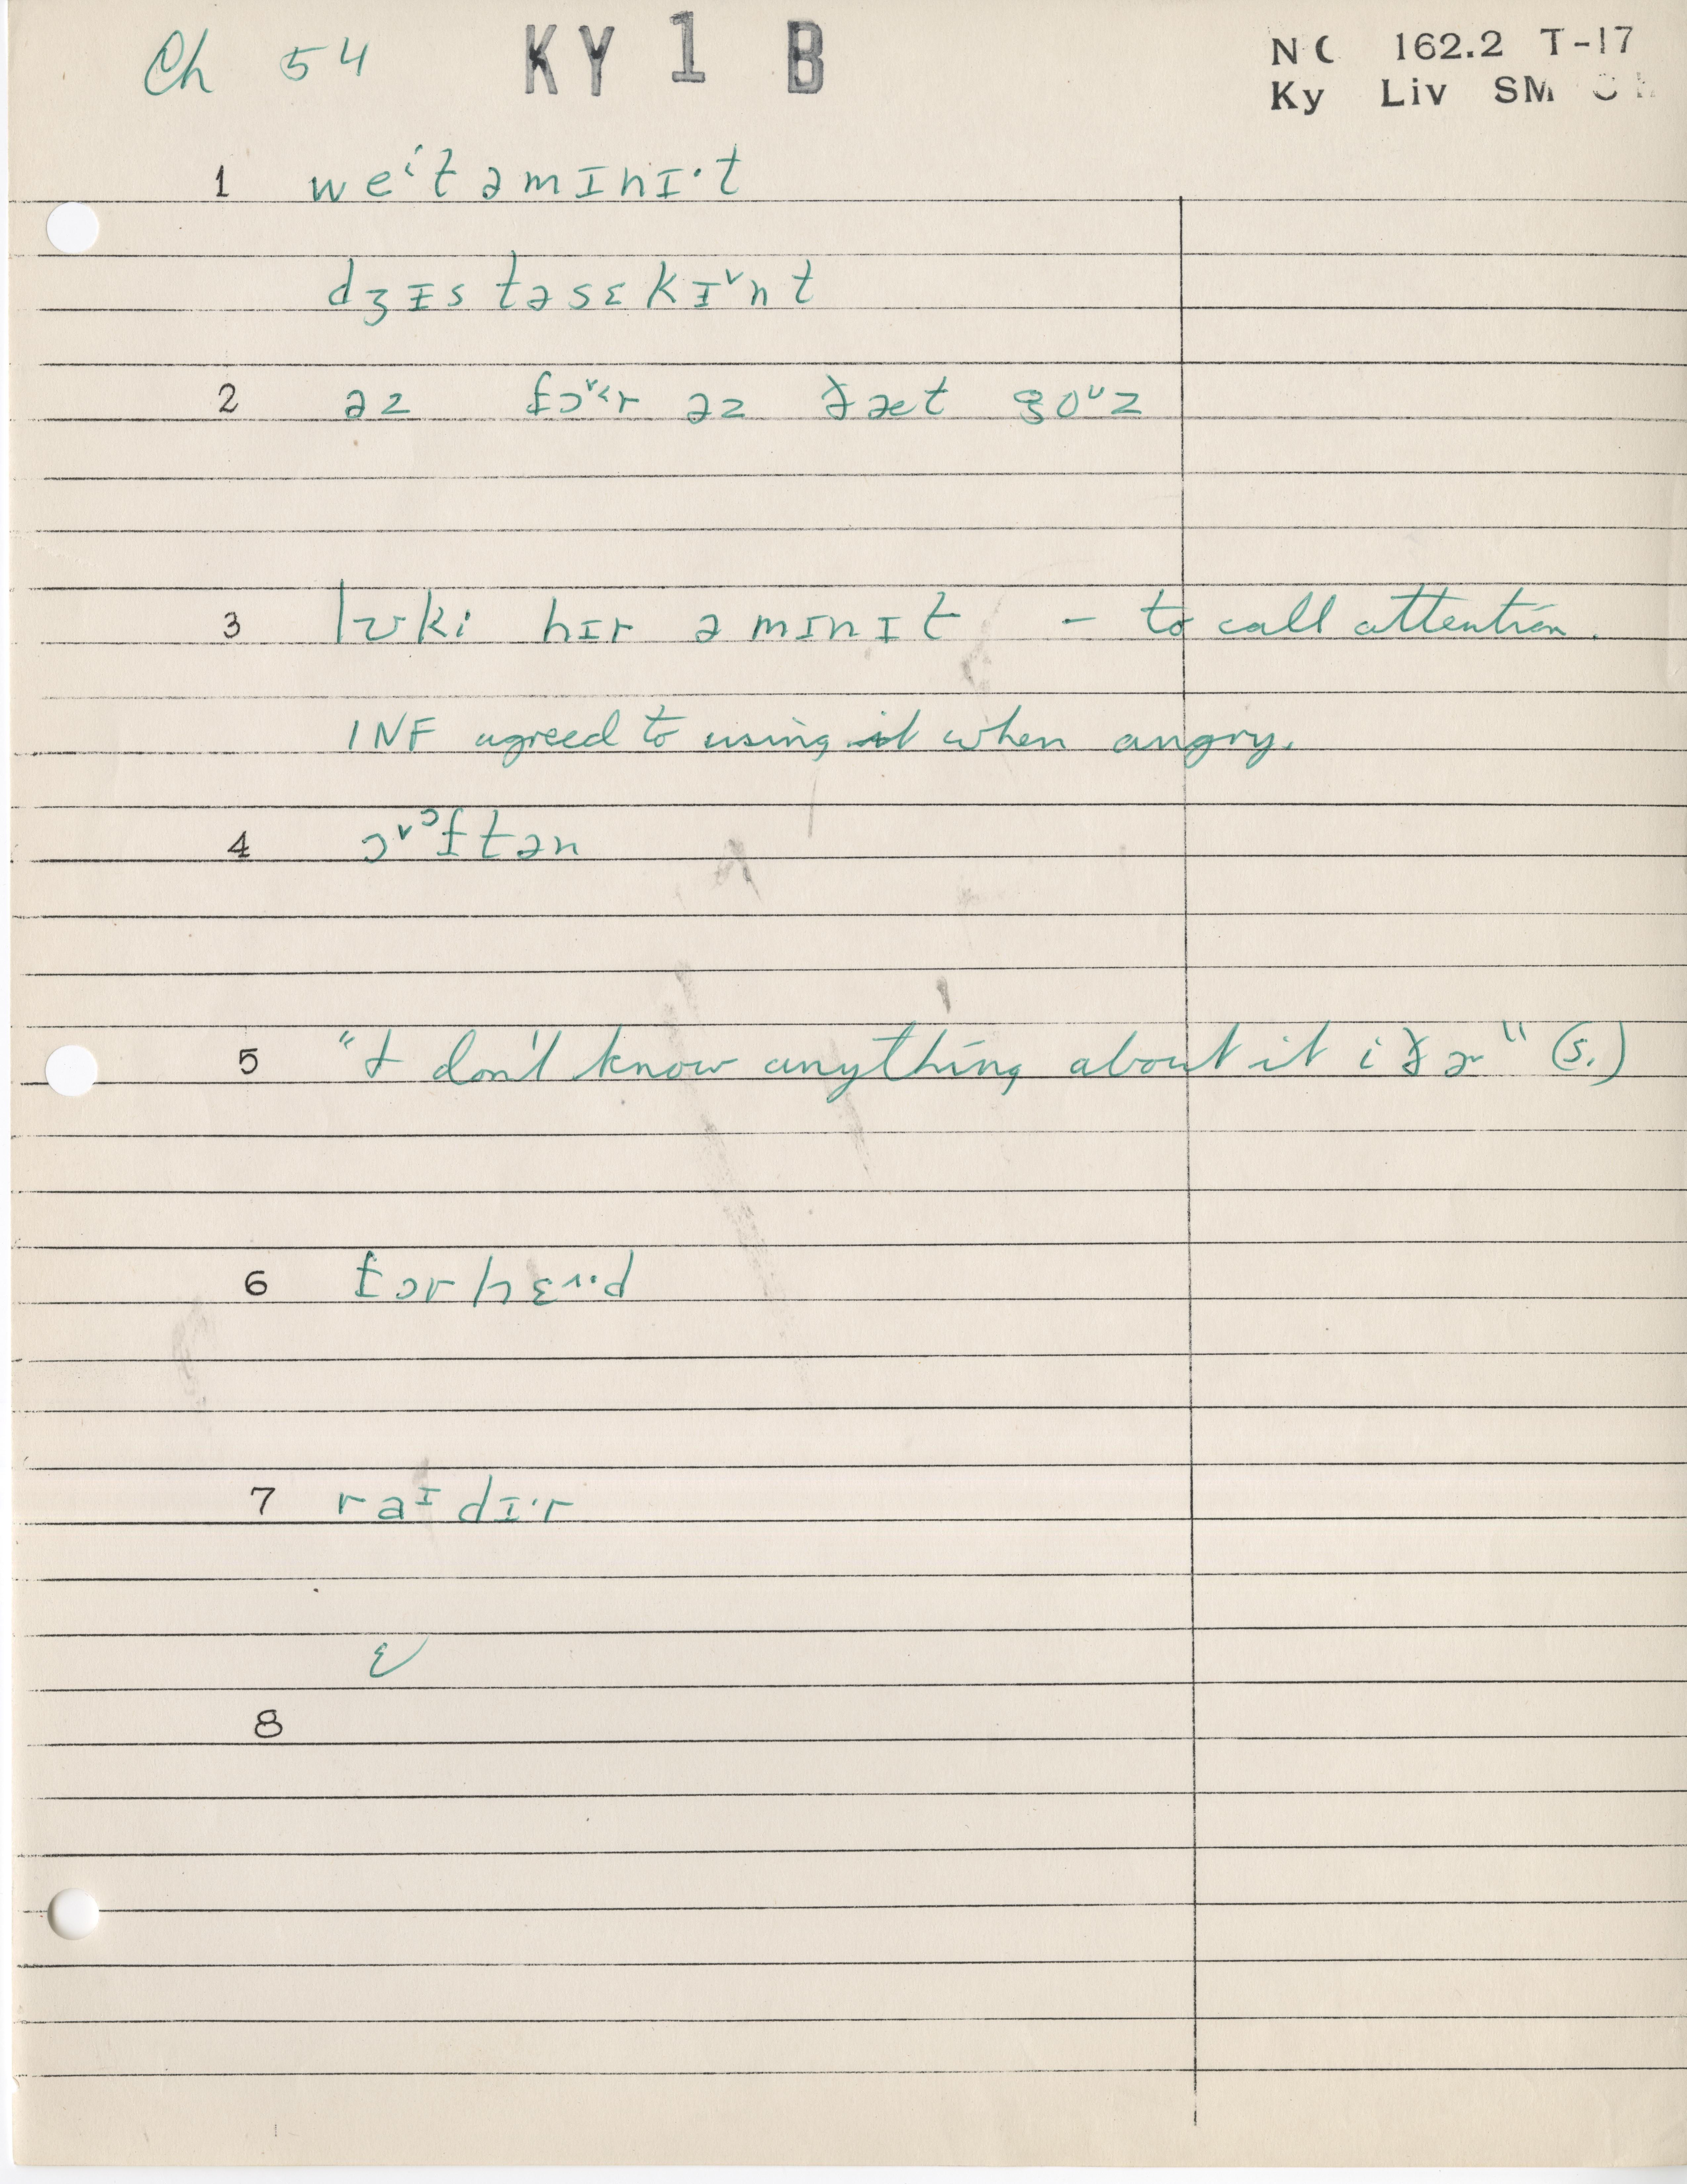 Ch 54 KY 1 B NC 162.2 T-17
Ky Liv SM
1 weᶦt ə mɪnɪ·t
dʒɪs təsɛkɪ˅nt
2 əz fɔ˅˂r əz ðæt goᶸz
3 lʊki hɪr ə mɪnɪt – to call attention.
INF agreed to using it when angry.
4 ɔ˅ᵓftən
5 "I don't know anything about it iðɚ" (s.)
6 fɔrhɛ˄·d
7 raᶦdɪ·r
ɛ
8